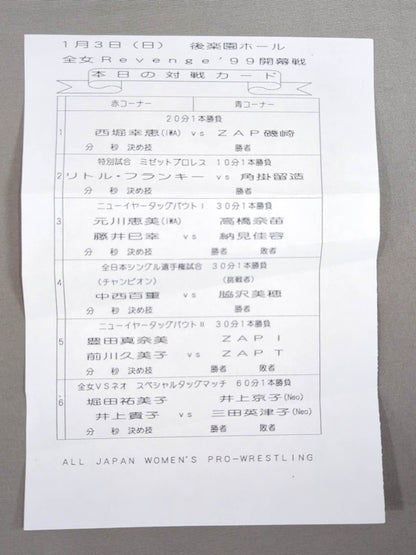 1月3日（日）　後楽園ホール
全女Revenge'99開幕戦
本日の対戦カード
赤コーナー　青コーナー
20分1本勝負
1 西堀幸恵(IWA) vs ZAP磯崎
分　秒　決め技　勝者
特別試合　ミゼットプロレス　10分1本勝負
2 リトル・フランキー vs 角掛留造
分　秒　決め技　勝者
ニューイヤータッグバウトⅠ　30分1本勝負
3 元川恵美(IWA)　高橋奈苗
藤井巳幸 vs 納見佳容
分　秒　決め技　勝者　敗者
全日本シングル選手権試合　30分1本勝負
(チャンピオン)　(挑戦者)
4 中西百重 vs 脇沢美穂
分　秒　決め技　勝者
ニューイヤータッグバウトⅡ　30分1本勝負
5 豊田真奈美　ZAP I
前川久美子 vs ZAP T
分　秒　決め技　勝者　敗者
全女VSネオ　スペシャルタッグマッチ　60分1本勝負
6 堀田祐美子　井上京子(Neo)
井上貴子 vs 三田英津子(Neo)
分　秒　決め技　勝者　敗者
ALL JAPAN WOMEN'S PRO-WRESTLING